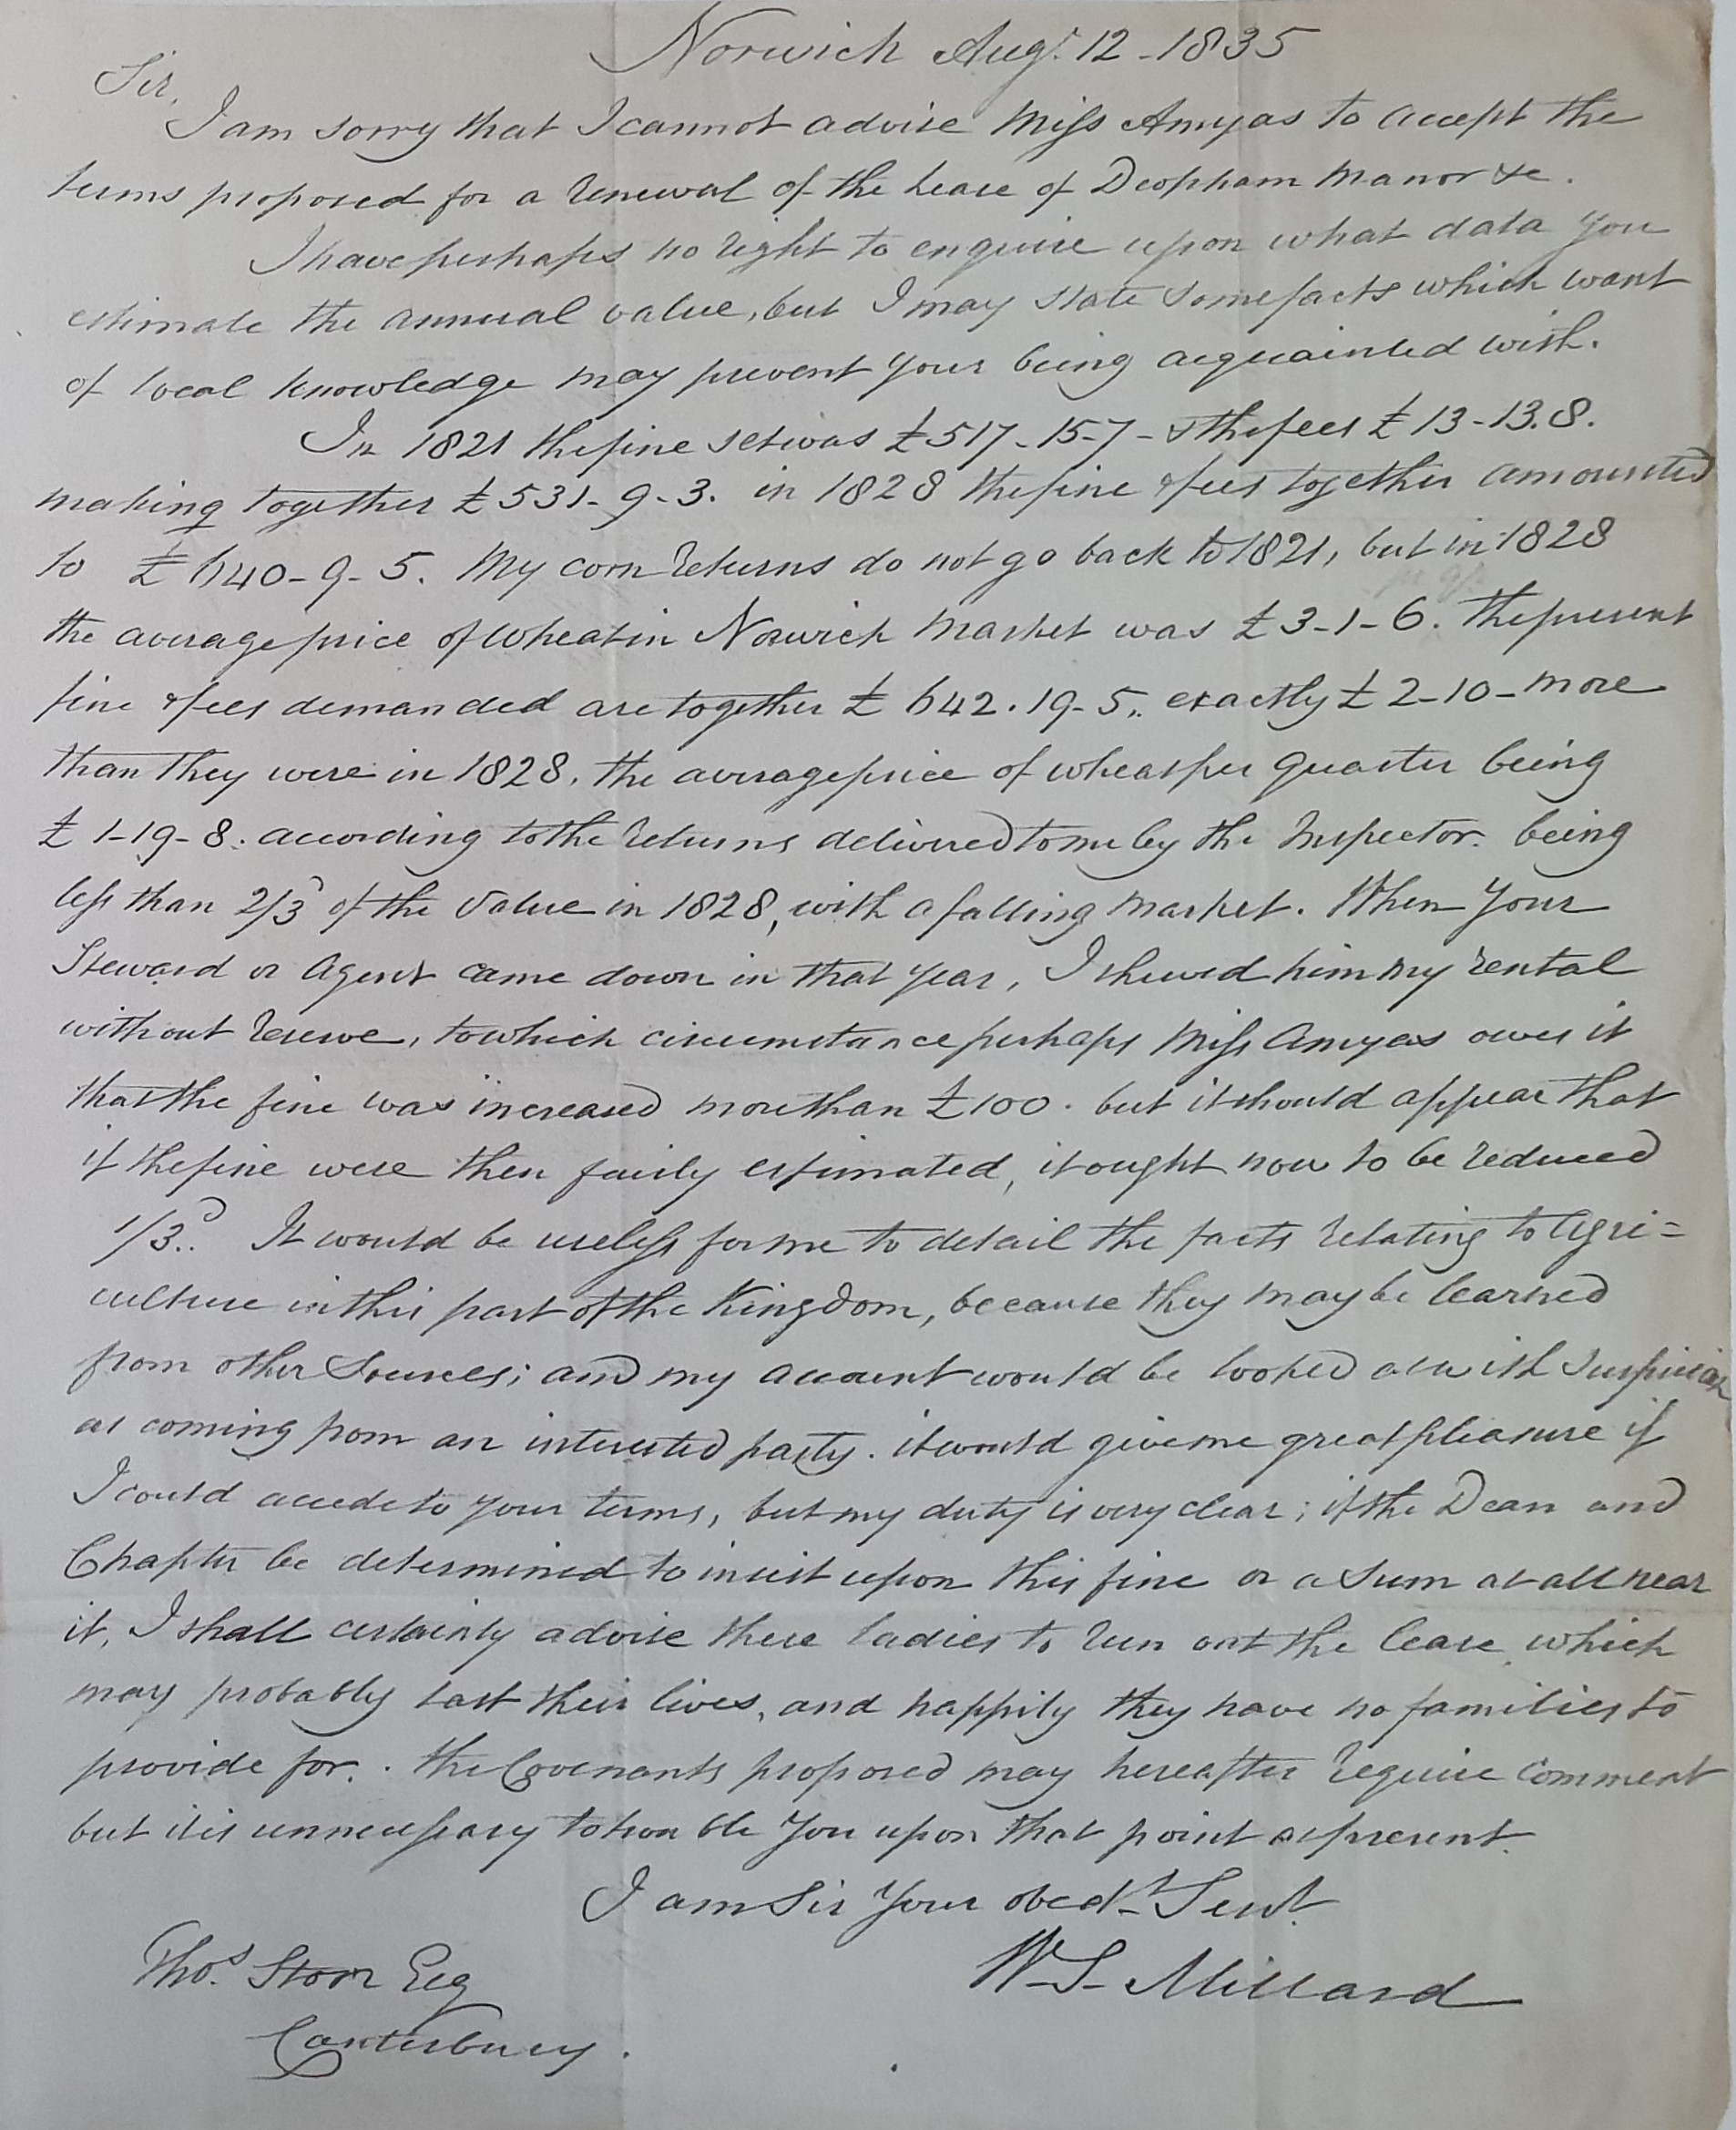 Norwich Augt. 12 - 1835
Sir,
I am sorry that I cannot advise Miss Amyas to accept the
terms proposed for a renewal of the Lease of Deopham Manor &c.
I have perhaps no right to enquire upon what data you
estimate the annual value, but I may state some facts which want
of local knowledge may prevent your being acquainted with.
In 1821 the fine set was £517-15-7- & the fees £13-13.8.
making together £531-9-3. in 1828 the fine & fees together amounted
to £640-9-5. My corn Returns do not go back to 1821, but in 1828
the average price of Wheat in Norwich Market was £3-1-6. The present
fine & fees demanded are together £642.19-5., exactly £2-10- more
than they were in 1828, the average price of wheat per quarter being
£1-19-8. according to the Returns delivered to me by the Inspector. being
less than 2/3d of the Value in 1828, with a falling Market. When Your
Steward or Agent came down in that year, I shewed him my rental
without reserve, to which circumstance perhaps Miss Amyas owes it
that the fine was increased more than £100. but it should appear that
if the fine were then fairly estimated, it ought now to be reduced
1/3d.. It would be useless for me to detail the facts relating to Agri=
culture in this part of the Kingdom, because they may be learned
from other Sources; and my account would be looked at with suspicion
as coming from an interested party. it would give me great pleasure if
I could accede to your terms, but my duty is very clear; if the Dean and
Chapter be determined to insist upon this fine or a Sum at all near
it, I shall certainly advise these ladies to run out the lease which
may probably last their lives, and happily they have no families to
provide for. . the Covenants proposed may hereafter require comment
but it is unnecessary to trouble You upon that point at present.
I am Sir Your obedt. Servt.
W. S. Millard
Thos. Storr Esq
Canterbury.